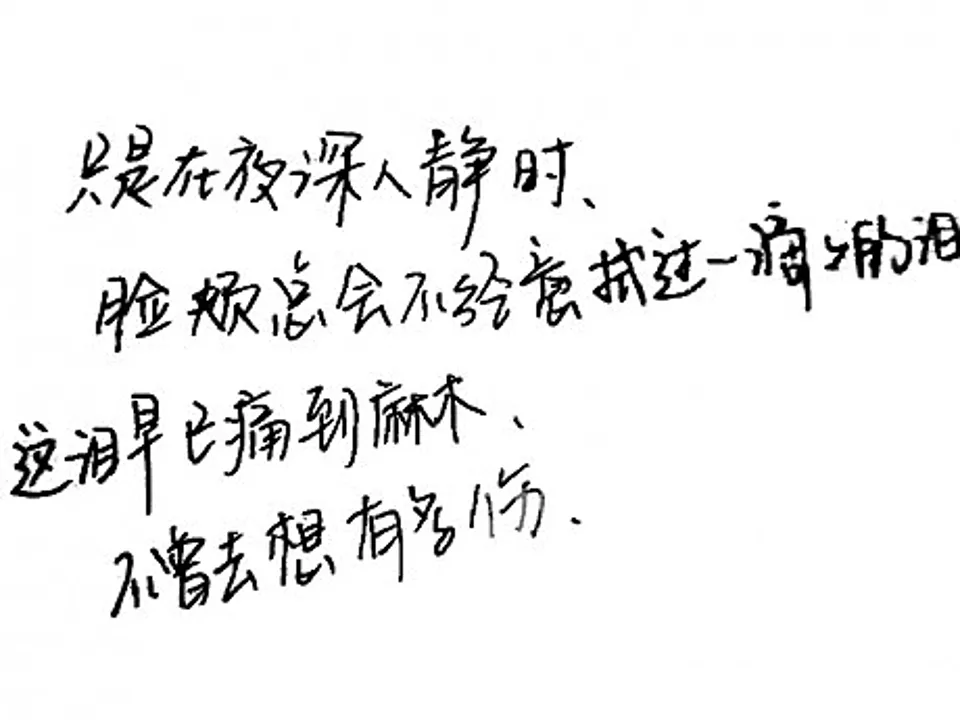 只是在夜深人静时、
脸颊总会不经意拭过一滴滴的泪
这泪早已痛到麻木、
不曾去想有多伤.